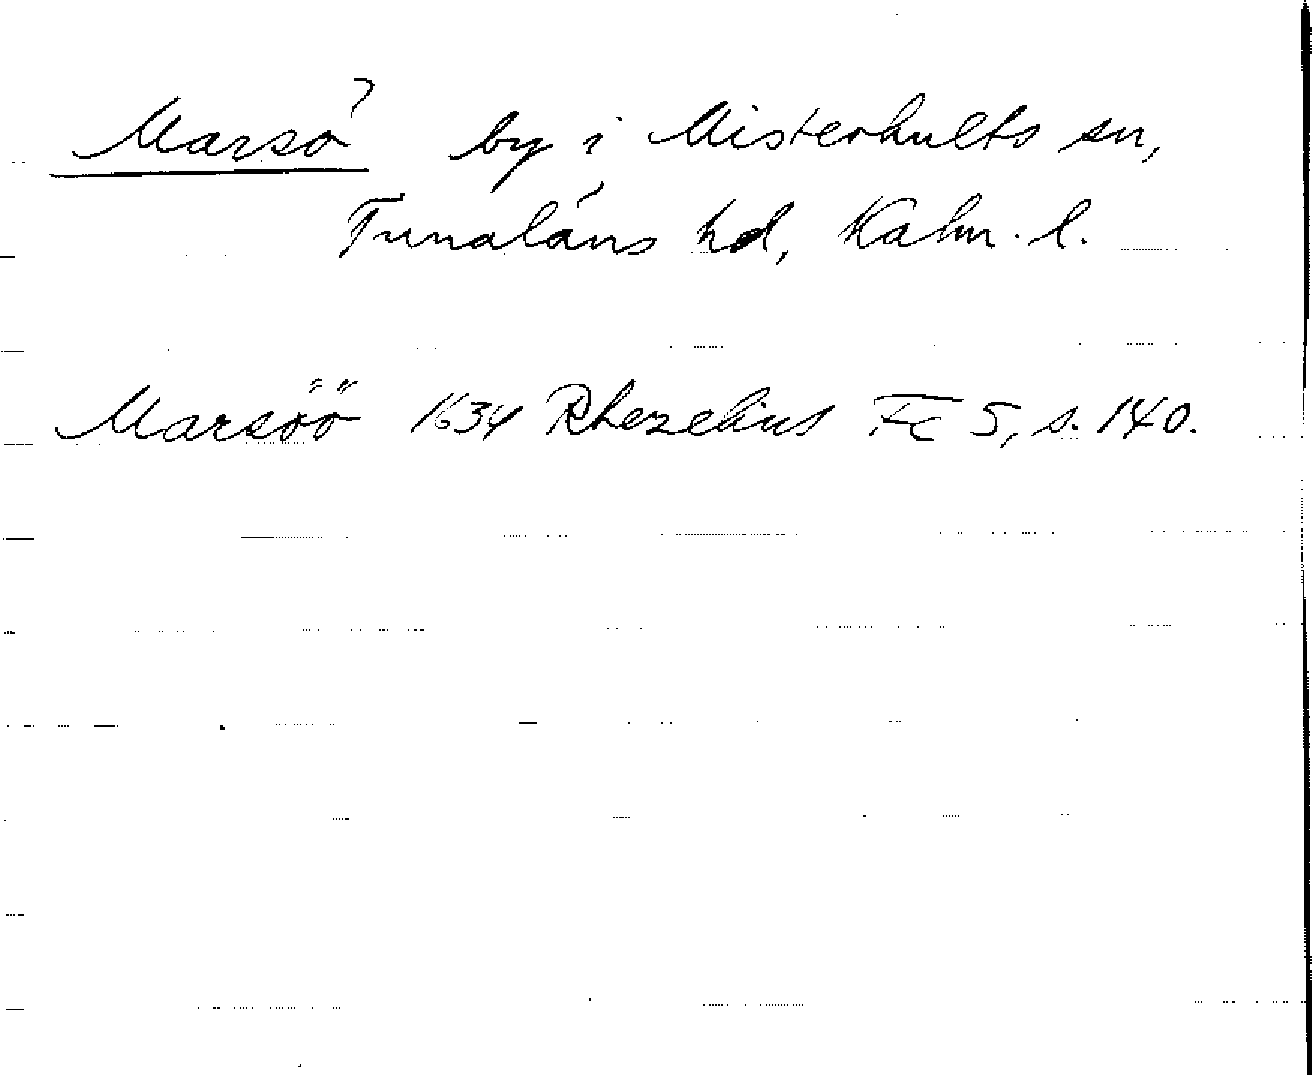 Marsö by i Misterhults sn,
Tunaläns hd, Kalm. l.
Marsöö 1634 Rhezelius Fc 5, s. 140.